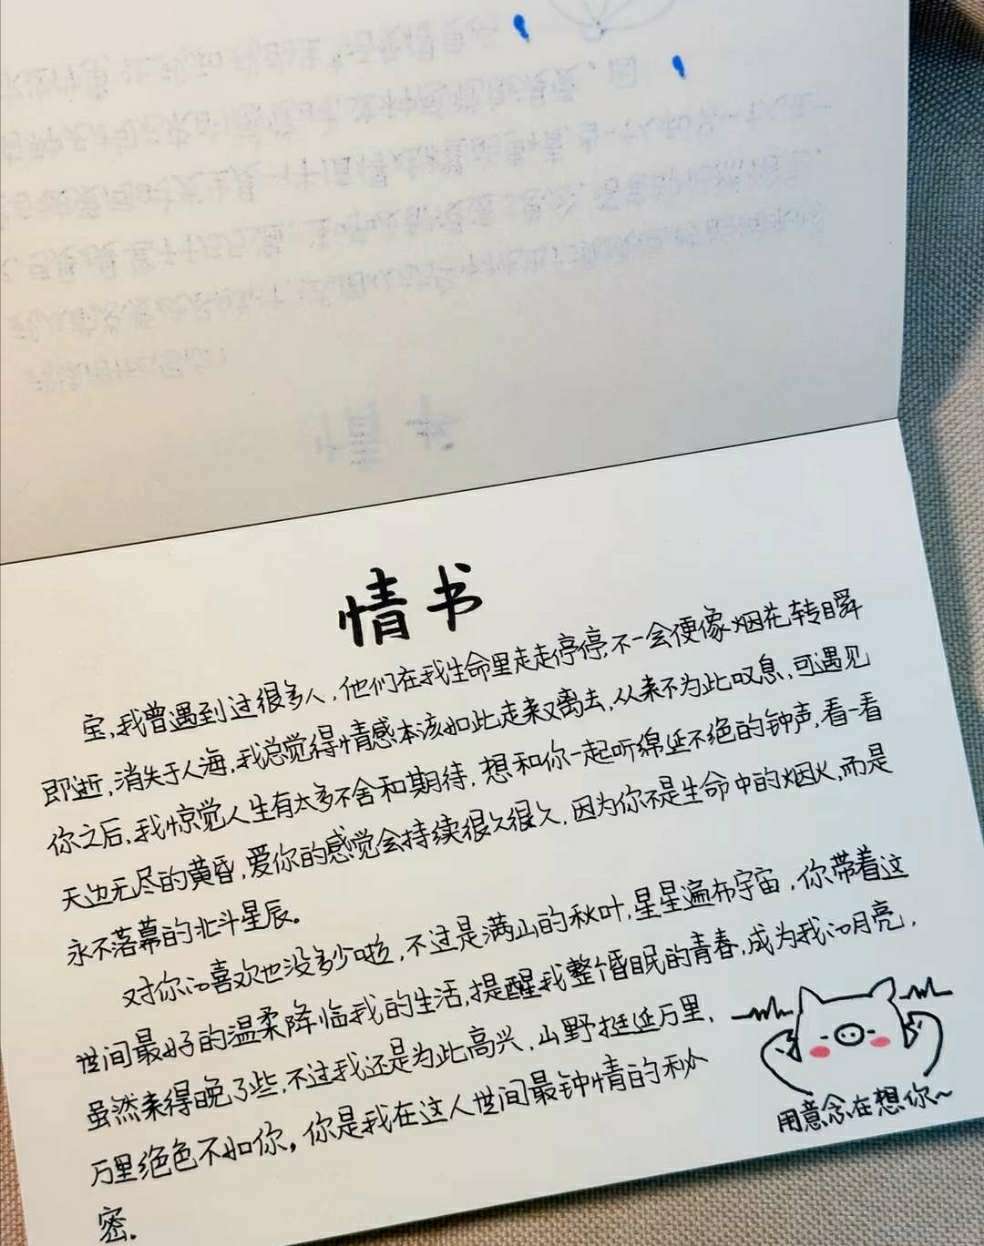 情书
宝,我曾遇到过很多人,他们在我生命里走走停停,不一会便像烟花,转瞬
即逝,消失于人海,我总觉得情感本该如此走来又离去,从来不为此叹息,可遇见
你之后,我惊觉人生有太多不舍和期待,想和你一起听绵延不绝的钟声,看一看
天边无尽的黄昏,爱你的感觉会持续很久很久,因为你不是生命中的烟火,而是
永不落幕的北斗星辰。
对你的喜欢也没多少啦,不过是满山的秋叶,星星遍布宇宙,你带着这
世间最好的温柔降临我的生活,提醒我整个昏眠的青春,成为我的月亮,
虽然来得晚了些,不过我还是为此高兴,山野挺延万里,
万里绝色不如你。你是我在这人世间最钟情的秘
密。
用意念在想你~